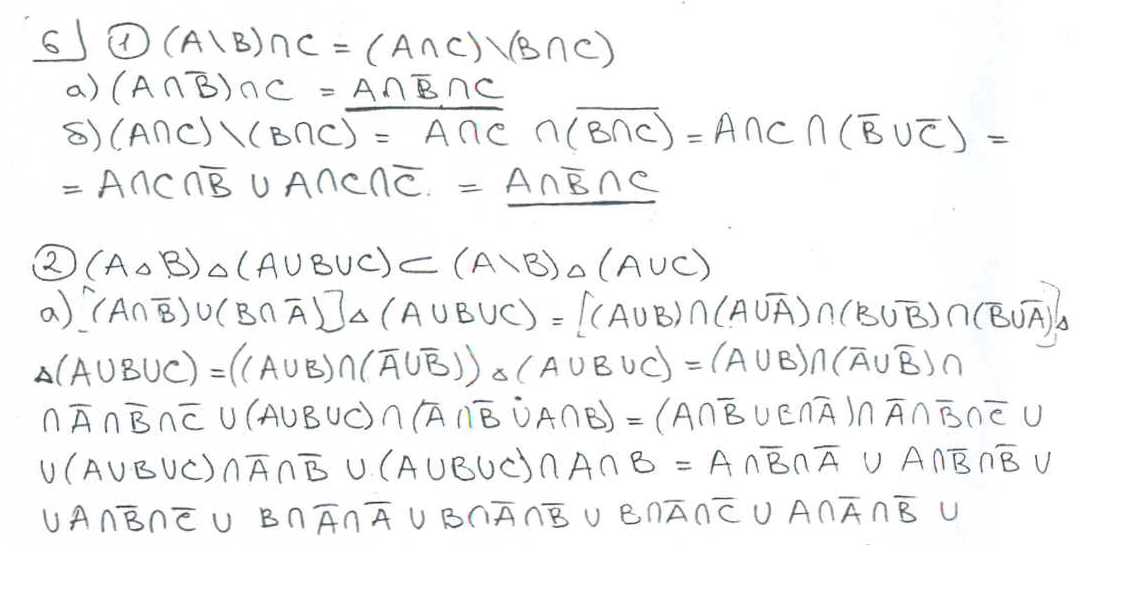 6] ① (A\B)∩C = (A∩C)\(B∩C)
а) (A∩B̅)∩C = A∩B̅∩C
б) (A∩C)\(B∩C) = A∩C ∩(\overline{B∩C}) = A∩C∩(B̅∪C̅) =
= A∩C∩B̅ ∪ A∩C∩C̅. = A∩B̅∩C
② (A△B)△(A∪B∪C)⊂ (A\B)△(A∪C)
а) [(A∩B̅)∪(B∩A̅)]△(A∪B∪C) = [(A∪B)∩(A∪A̅)∩(B∪B̅)∩(B̅∪A̅)]△
△(A∪B∪C) = ((A∪B)∩(A̅∪B̅))△(A∪B∪C) = (A∪B)∩(A̅∪B̅)∩
∩A̅∩B̅∩C̅ ∪(A∪B∪C)∩(A̅∩B̅ ∪A∩B) = (A∩B̅∪B∩A̅)∩A̅∩B̅∩C̅ ∪
∪(A∪B∪C)∩A̅∩B̅ ∪.(A∪B∪C)∩A∩B = A∩B̅∩A̅ ∪ A∩B̅∩B̅ ∪
∪A∩B̅∩C̅ ∪ B∩A̅∩A̅ ∪ B∩A̅∩B̅ ∪ B∩A̅∩C̅ ∪ A∩A̅∩B̅ ∪